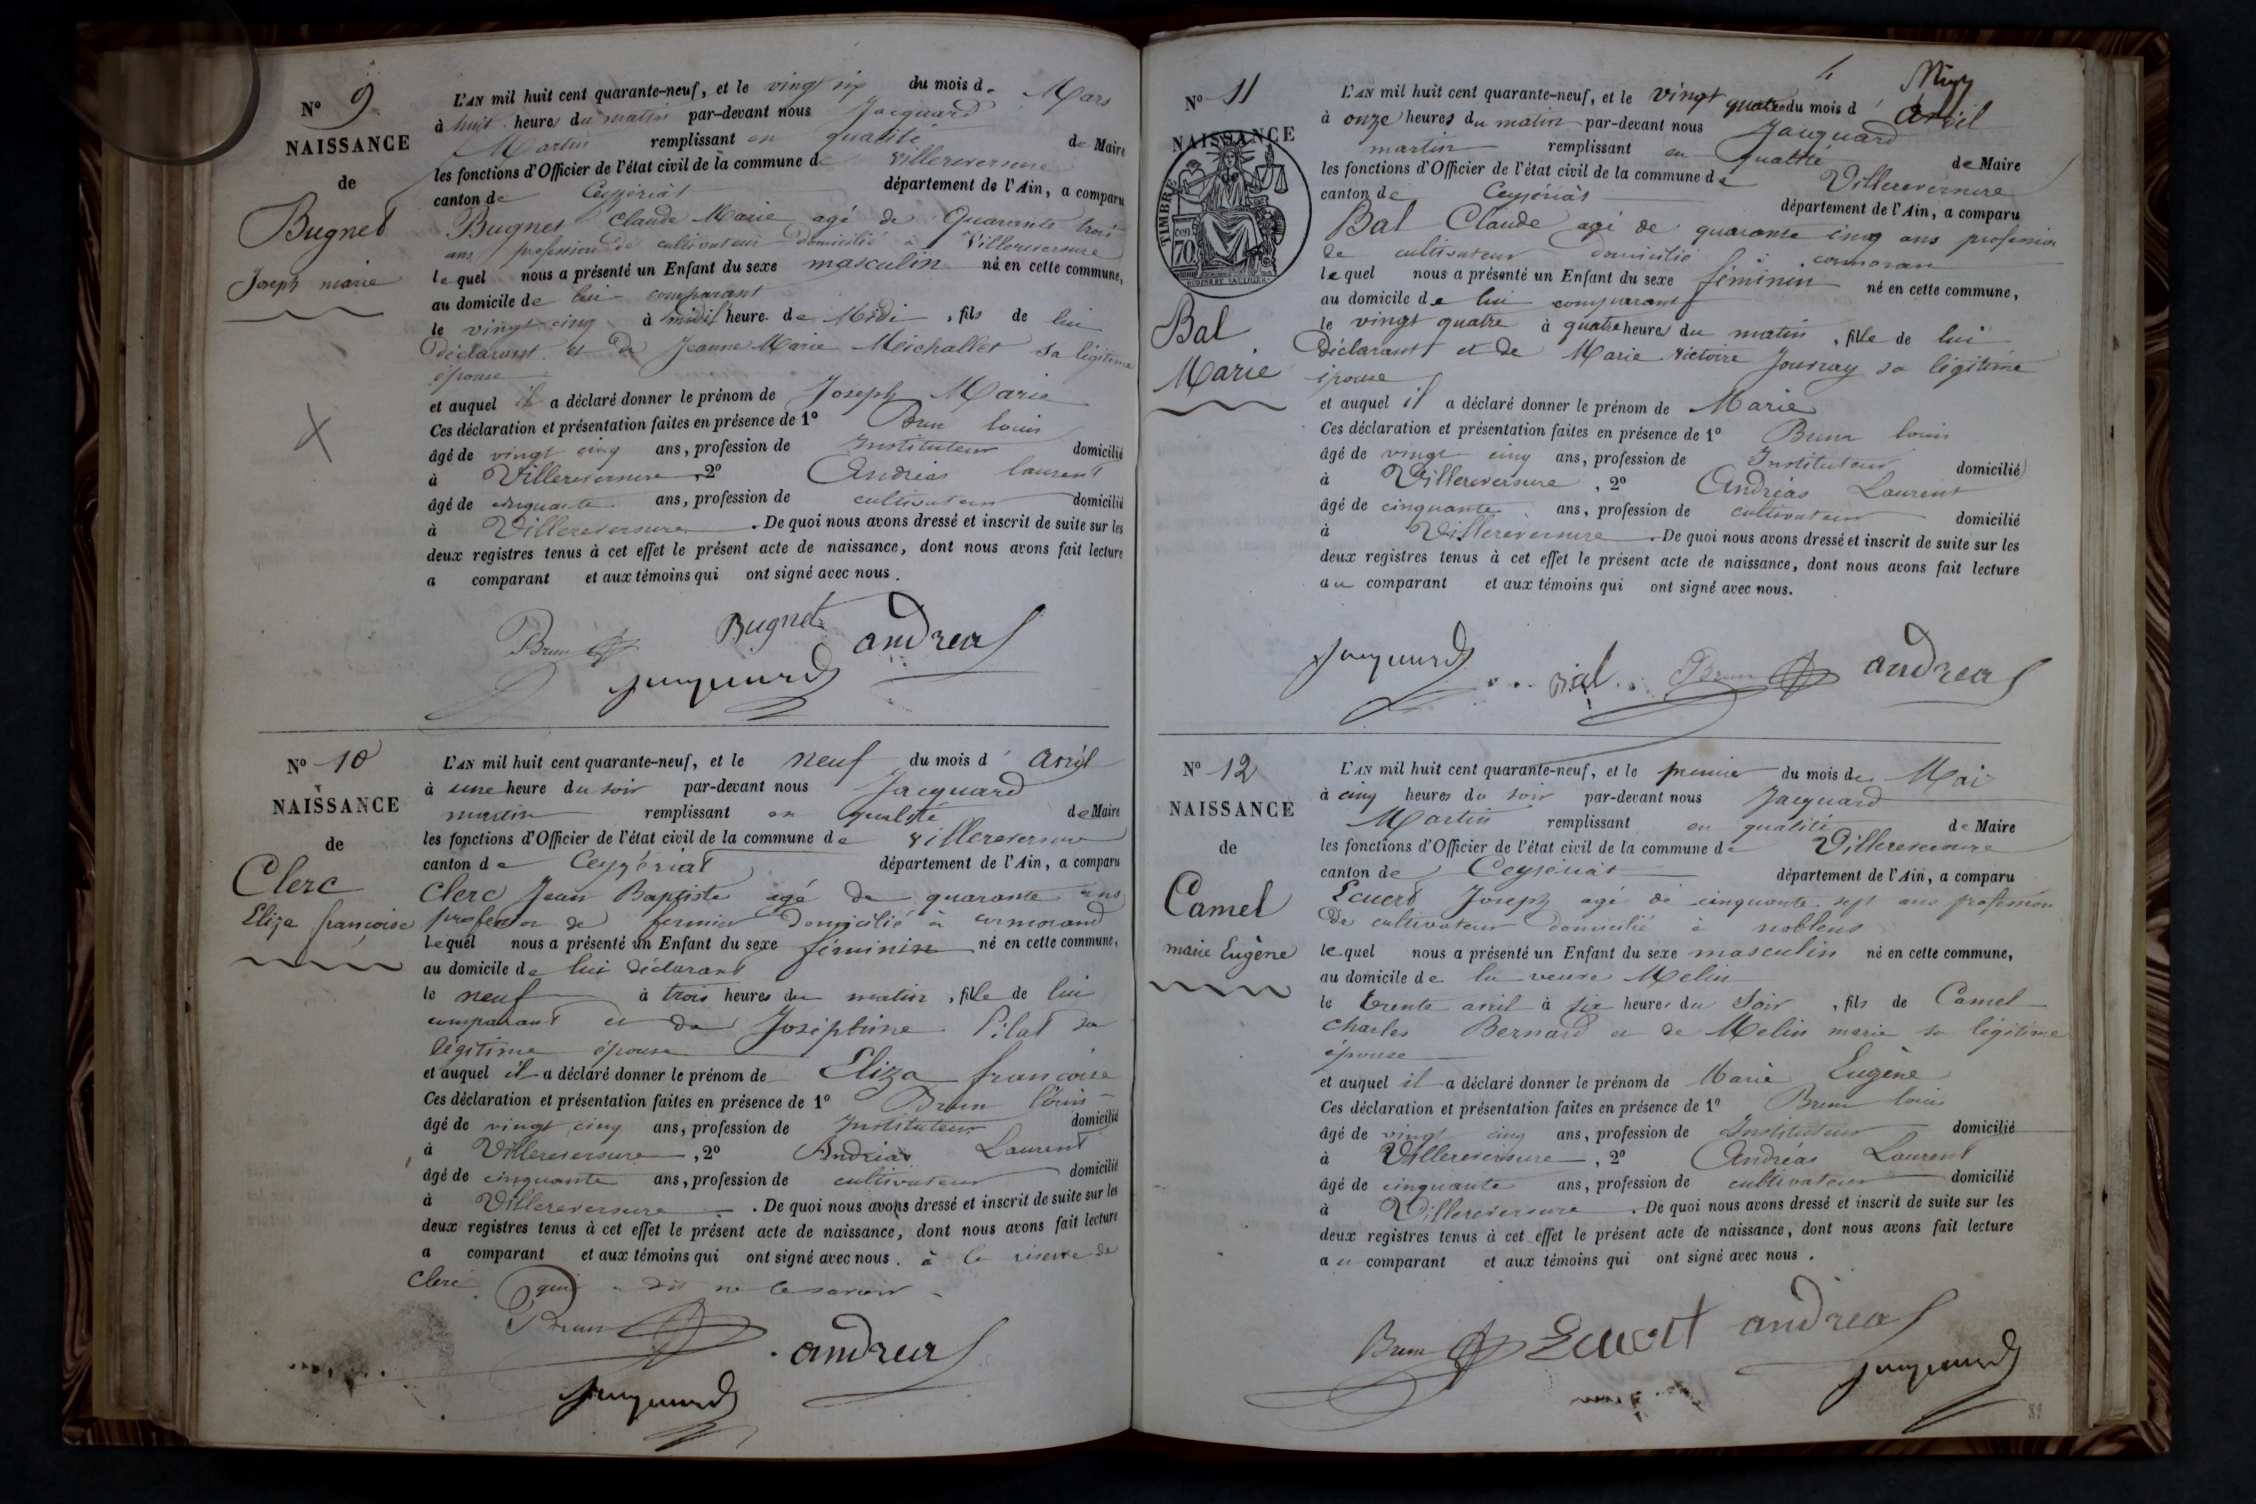 N° 9
NAISSANCE
de
Bugnet
Joseph marie
L'AN mil huit cent quarante-neuf, et le vingt six du mois de Mars
à huit heures du matin par-devant nous Jacquard
Martin remplissant en qualité de Maire
les fonctions d'Officier de l'état civil de la commune de Villereversure
canton de Ceyzériat département de l'Ain, a comparu
Bugnet Claude Marie agé de Quarante trois
ans profession de cultivateur domicilié à Villereversure
lequel nous a présenté un Enfant du sexe masculin né en cette commune,
au domicile de lui comparant
le vingt cinq à midi heure de Midi, fils de lui
Déclarant et de Jeanne Marie Michallet sa légitime
épouse
et auquel il a déclaré donner le prénom de Joseph Marie
Ces déclaration et présentation faites en présence de 1° Brun louis
âgé de vingt cinq ans, profession de Instituteur domicilié
à Villereversure, 2° Andréas laurent
âgé de cinquante ans, profession de cultivateur domicilié
à Villereversure. De quoi nous avons dressé et inscrit de suite sur les
deux registres tenus à cet effet le présent acte de naissance, dont nous avons fait lecture
a comparant et aux témoins qui ont signé avec nous.
Brun Bugnet andreas
Jacquard
N° 10
NAISSANCE
de
Clerc
Eliza françoise
L'AN mil huit cent quarante-neuf, et le neuf du mois d'avril
à une heure du soir par-devant nous Jacquard
martin remplissant en qualité de Maire
les fonctions d'Officier de l'état civil de la commune de Villereversure
canton de Ceyzériat département de l'Ain, a comparu
Clerc Jean Baptiste agé de quarante ans
profession de fermier Domicilié à cormorand
lequel nous a présenté un Enfant du sexe féminin né en cette commune,
au domicile de lui déclarant
le neuf à trois heures du matin, fille de lui
comparant et de Joséphine Pilat sa
légitime épouse
et auquel il a déclaré donner le prénom de Eliza françoise
Ces déclaration et présentation faites en présence de 1° Brun louis
âgé de vingt cinq ans, profession de Instituteur domicilié
à Villereversure, 2° Andréas Laurent
âgé de cinquante ans, profession de cultivateur domicilié
à Villereversure. De quoi nous avons dressé et inscrit de suite sur les
deux registres tenus à cet effet le présent acte de naissance, dont nous avons fait lecture
a comparant et aux témoins qui ont signé avec nous. à la réserve de
Clerc qui a dit ne le savoir
Brun andreas
Jacquard
N° 11
NAISSANCE
TIMBRE
70
Bal
Marie
L'AN mil huit cent quarante-neuf, et le vingt quatre du mois d'avril
à onze heures du matin par-devant nous Jacquard
martin remplissant en qualité de Maire
les fonctions d'Officier de l'état civil de la commune de Villereversure
canton de Ceyzériat département de l'Ain, a comparu
Bal Claude agé de quarante cinq ans profession
de cultivateur domicilié à cormoran
lequel nous a présenté un Enfant du sexe féminin né en cette commune,
au domicile de lui comparant
le vingt quatre à quatre heures du matin, fille de lui
Déclarant et de Marie Victoire Journay sa légitime
épouse
et auquel il a déclaré donner le prénom de Marie
Ces déclaration et présentation faites en présence de 1° Brun louis
âgé de vingt cinq ans, profession de Instituteur domicilié
à Villereversure, 2° Andréas Laurent
âgé de cinquante ans, profession de cultivateur domicilié
à Villereversure. De quoi nous avons dressé et inscrit de suite sur les
deux registres tenus à cet effet le présent acte de naissance, dont nous avons fait lecture
au comparant et aux témoins qui ont signé avec nous.
Jacquard Bal Brun andreas
N° 12
NAISSANCE
de
Camel
marie Eugène
L'AN mil huit cent quarante-neuf, et le premier du mois de Mai
à cinq heures du soir par-devant nous Jacquard
Martin remplissant en qualité de Maire
les fonctions d'Officier de l'état civil de la commune de Villereversure
canton de Ceyzériat département de l'Ain, a comparu
Ecuert Joseph agé de cinquante sept ans profession
De cultivateur domicilié à noblens
lequel nous a présenté un Enfant du sexe masculin né en cette commune,
au domicile de la veuve Melin
le trente avril à six heures du Soir, fils de Camel
Charles Bernard et de Melin marie sa légitime
épouse
et auquel il a déclaré donner le prénom de Marie Eugène
Ces déclaration et présentation faites en présence de 1° Brun louis
âgé de vingt cinq ans, profession de Instituteur domicilié
à Villereversure, 2° Andréas Laurent
âgé de cinquante ans, profession de cultivateur domicilié
à Villereversure. De quoi nous avons dressé et inscrit de suite sur les
deux registres tenus à cet effet le présent acte de naissance, dont nous avons fait lecture
au comparant et aux témoins qui ont signé avec nous.
Brun Ecuert andreas
Jacquard